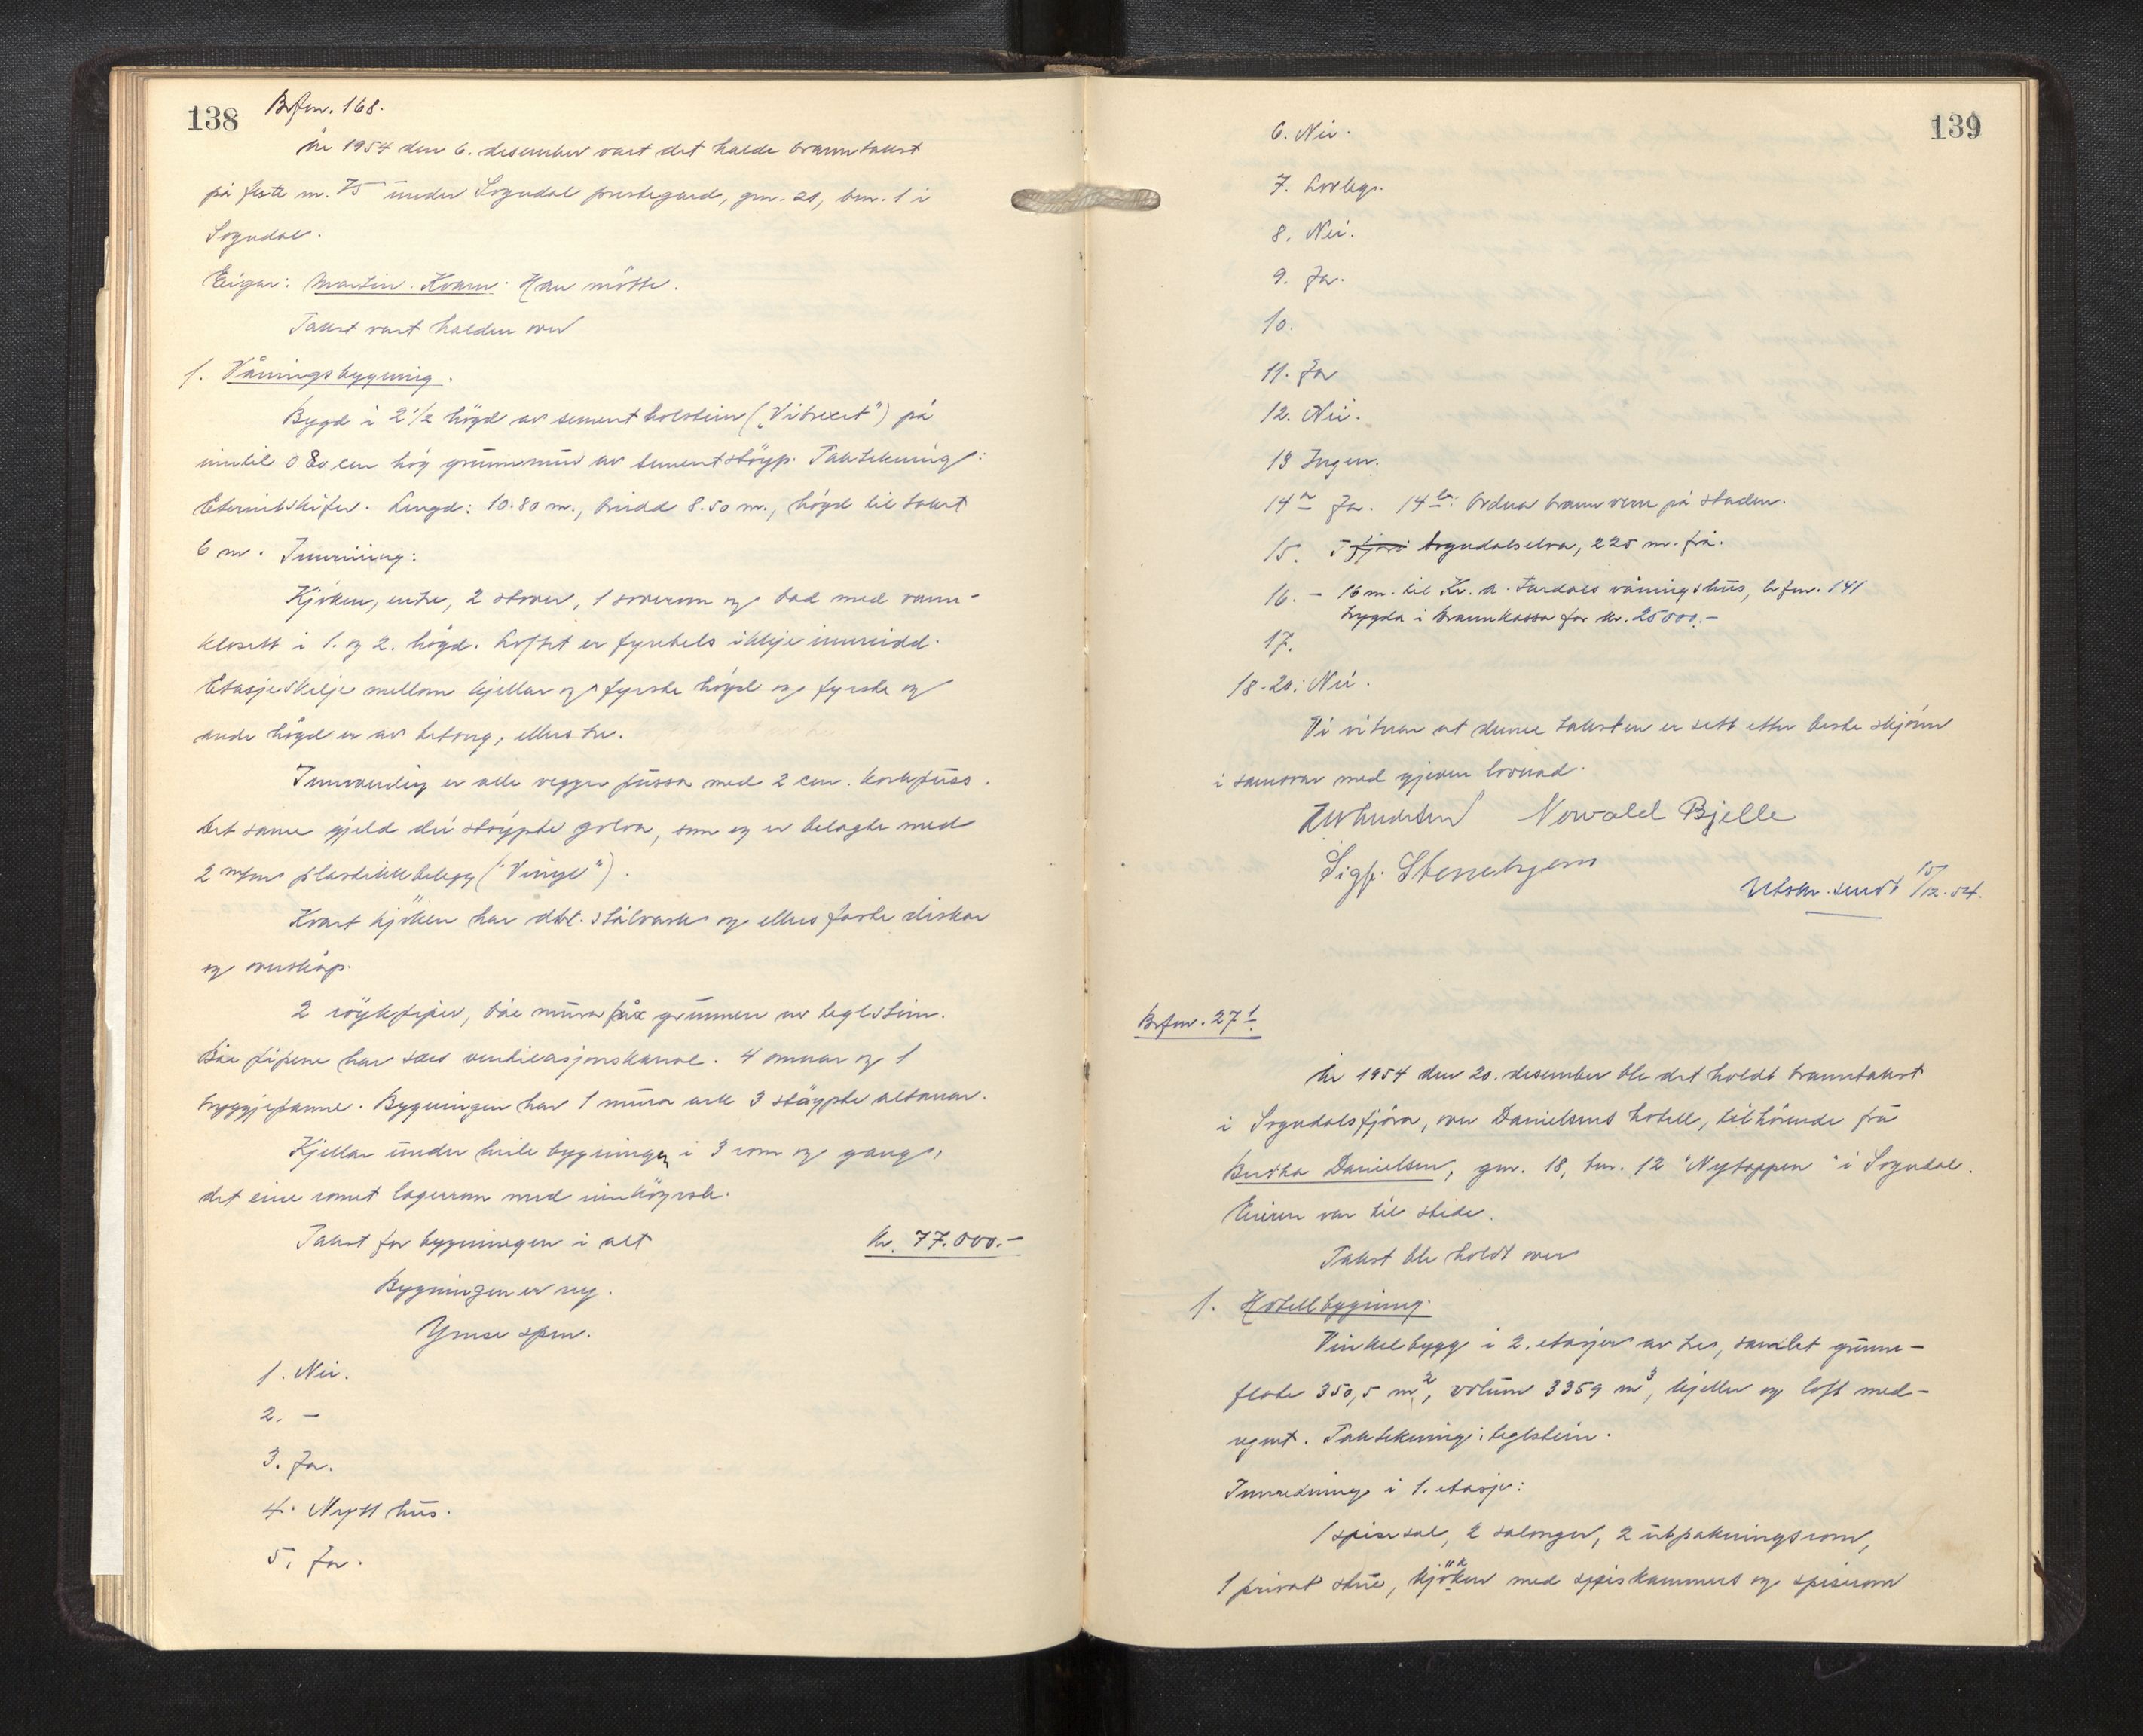 138
Brfnr. 168.
År 1954 den 6. desember vart det halde branntakst
på feste nr. 75 under Sogndal prestegard, gnr. 21, bnr. 1 i
Sogndal.
Eigar: Martin Kvam. Han møtte.
Takst vart halden over
1. Våningsbygning.
Bygd i 2 1/2 högd av sement holstein ("Vibrext") på
inntil 0.80 cm hög grunnmur av sementstöyp. Taktekning:
Eternitskifer. Lengd: 10.80 m., breidd 8.50 m., högd til takst
6 m. Innreiing:
Kjöken, entre, 2 stover, 1 soverom og bad med vann-
klosett i 1. og 2. högd. Loftet er fyrebels ikkje innreidd.
Etasjeskilje mellom kjellar og fyrste högd og fyrste og
andre högd er av betong, ellers tre.
Innvendig er alle vegger pussa med 2 cm. korkpuss.
Det same gjeld dei stöypte golva, som og er belagte med
2 m/m plastikkbelegg ("Vinyl").
Kvart kjöken har dbl. stålvask og ellers faste diskar
og overskåp.
2 röykpiper, båe mura frå grunnen av teglstein.
Båe pipene har sers ventilasjonskanal. 4 omnar og 1
bryggjepanne. Bygningen har 1 mura ark 3 stöypte altanar.
Kjellar under heile bygningen i 3 rom og gang,
det eine romet lagerrom med innkøyrsle.
Takst for bygningen i alt kr. 77.000.-
Bygningen er ny.
Ymse spm.
1. Nei.
2. -
3. Ja.
4. Nytt hus.
5. Ja.
139
6. Nei.
7. Lovleg.
8. Nei.
9. Ja.
10.
11. Ja
12. Nei.
13 Ingen.
14 a Ja. 14 b. Ordna brannvern på staden.
15. I fjøra Sogndalselva, 225 m. frå.
16. - 16 m. til Kr. A. Furdals våningshus, brfnr. 141
trygda i brannkassa for kr. 25000.-
17.
18-20: Nei.
Vi vitnar at denne taksten er sett etter beste skjønn
i samsvar med gjeven lovnad.
Nowald Bjelle
Sigf. Stenehjem
Utskr. sendt 15/12.54.
Brfnr. 271
År 1954 den 20. desember ble det holdt branntakst
i Sogndalsfjöra, over Danielsens hotell, tilhörende fru
Bertha Danielsen, gnr. 18, bnr. 12 "Nytoppen" i Sogndal.
Eieren var til stede.
Takst ble holdt over
1. Hotellbygning.
Vinkelbygg i 2. etasjer av tre, samlet grunn-
flate 350,5 m², volum 3359 m³, kjeller og loft med-
regnet. Taktekning: teglstein.
Innredning i 1. etasje:
1 spisesal, 2 salonger, 2 utpakningsrom,
1 privat stue, kjöken med spiskammers og spiserom